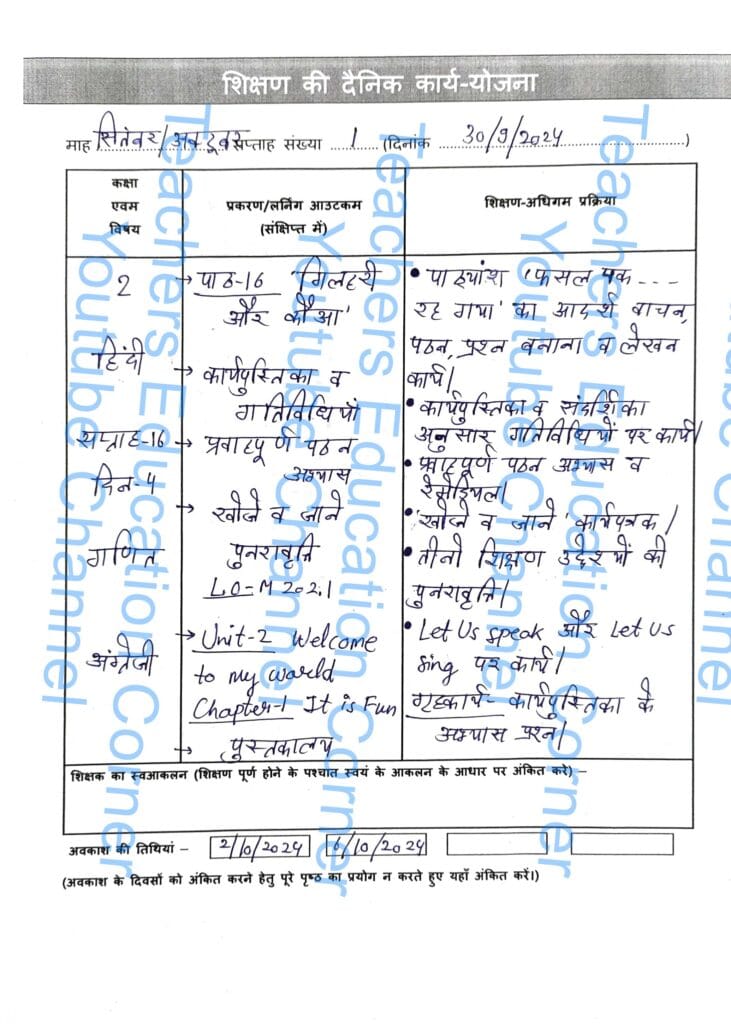 शिक्षण की दैनिक कार्य-योजना
माह सितंबर/अक्टूबर सप्ताह संख्या 1 (दिनांक 30/9/2024)
कक्षा
एवम
विषय
प्रकरण/लर्निंग आउटकम
(संक्षिप्त में)
शिक्षण-अधिगम प्रक्रिया
2
हिंदी
सप्ताह-16
दिन-4
गणित
अंग्रेजी
→ पाठ-16 'गिलहरी
और कौआ'
→ कार्यपुस्तिका व
गतिविधियाँ
→ प्रवाहपूर्ण पठन
अभ्यास
→ खोजे व जाने
पुनरावृत्ति
LO-M 202.1
→ Unit-2 Welcome
to my world
Chapter-1 It is Fun
→ पुस्तकालय
• पाठ्यांश 'फसल पक ---
रह गया' का आदर्श वाचन,
पठन, प्रश्न बनाना व लेखन
कार्य।
• कार्यपुस्तिका व संदर्शिका
अनुसार गतिविधियों पर कार्य।
• प्रवाहपूर्ण पठन अभ्यास व
रेमेडियल।
• 'खोजे व जाने' कार्यपत्रक।
• तीनो शिक्षण उद्देश्यों की
पुनरावृत्ति।
• Let Us speak और Let Us
sing पर कार्य।
गृहकार्य- कार्यपुस्तिका के
अभ्यास प्रश्न।
शिक्षक का स्वआकलन (शिक्षण पूर्ण होने के पश्चात स्वयं के आकलन के आधार पर अंकित करे) –
अवकाश की तिथियां – 2/10/2024 6/10/2024
(अवकाश के दिवसों को अंकित करने हेतु पूरे पृष्ठ का प्रयोग न करते हुए यहाँ अंकित करें।)
Teachers Education Corner
Youtube Channel
Teachers Education Corner
Youtube Channel
Teachers Education Corner
Youtube Channel